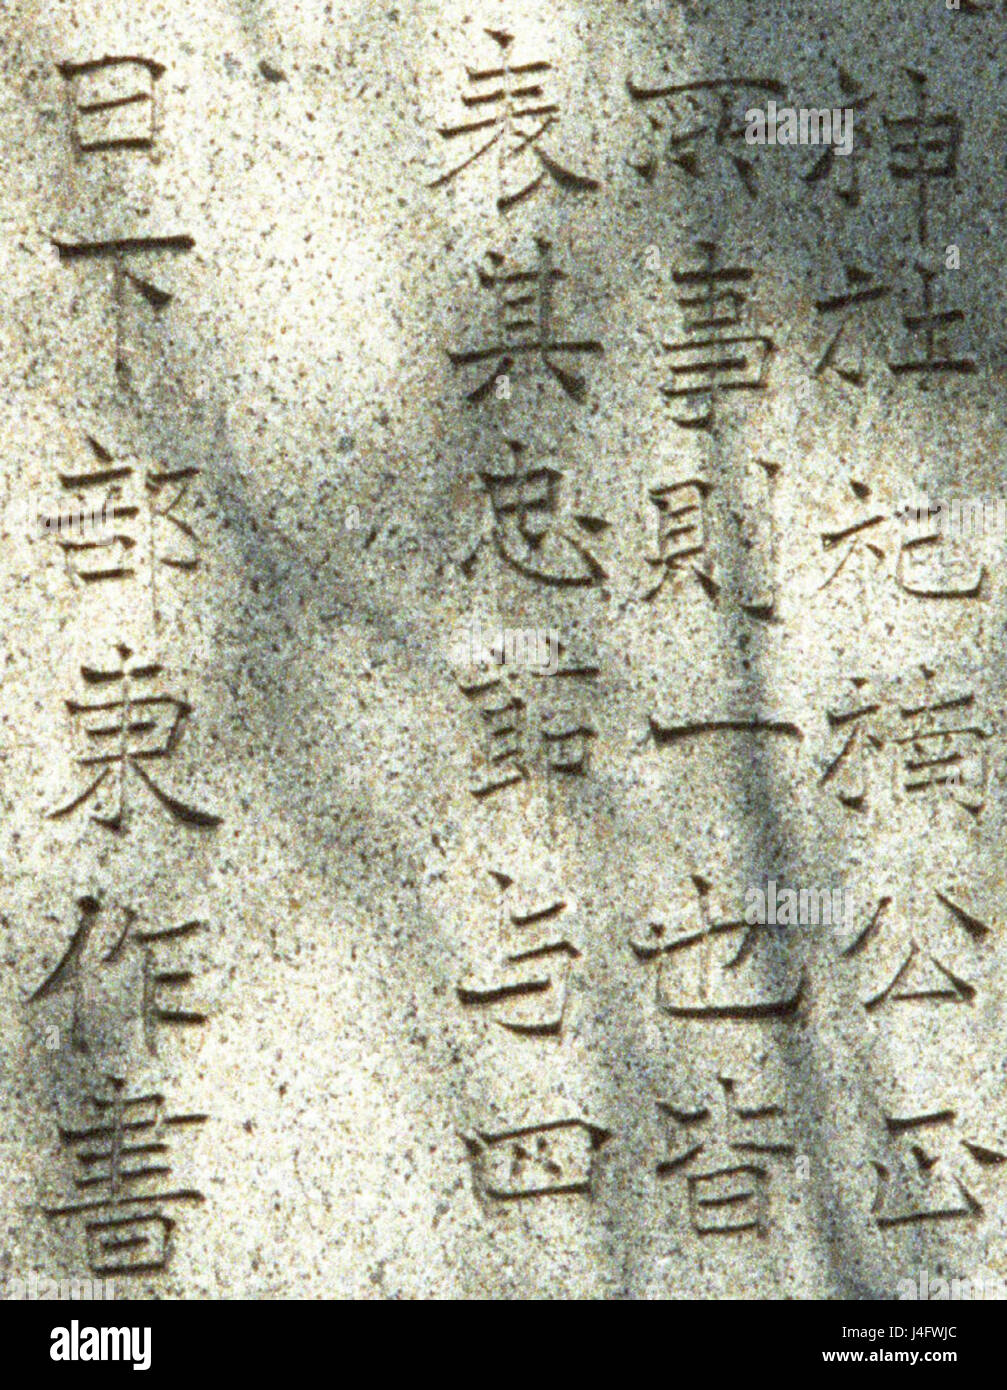 神社祀楠公正
所事則一也皆
表其忠節与四
日下部東作書
alamy
alamy
alamy
Image ID: J4FWJC
www.alamy.com